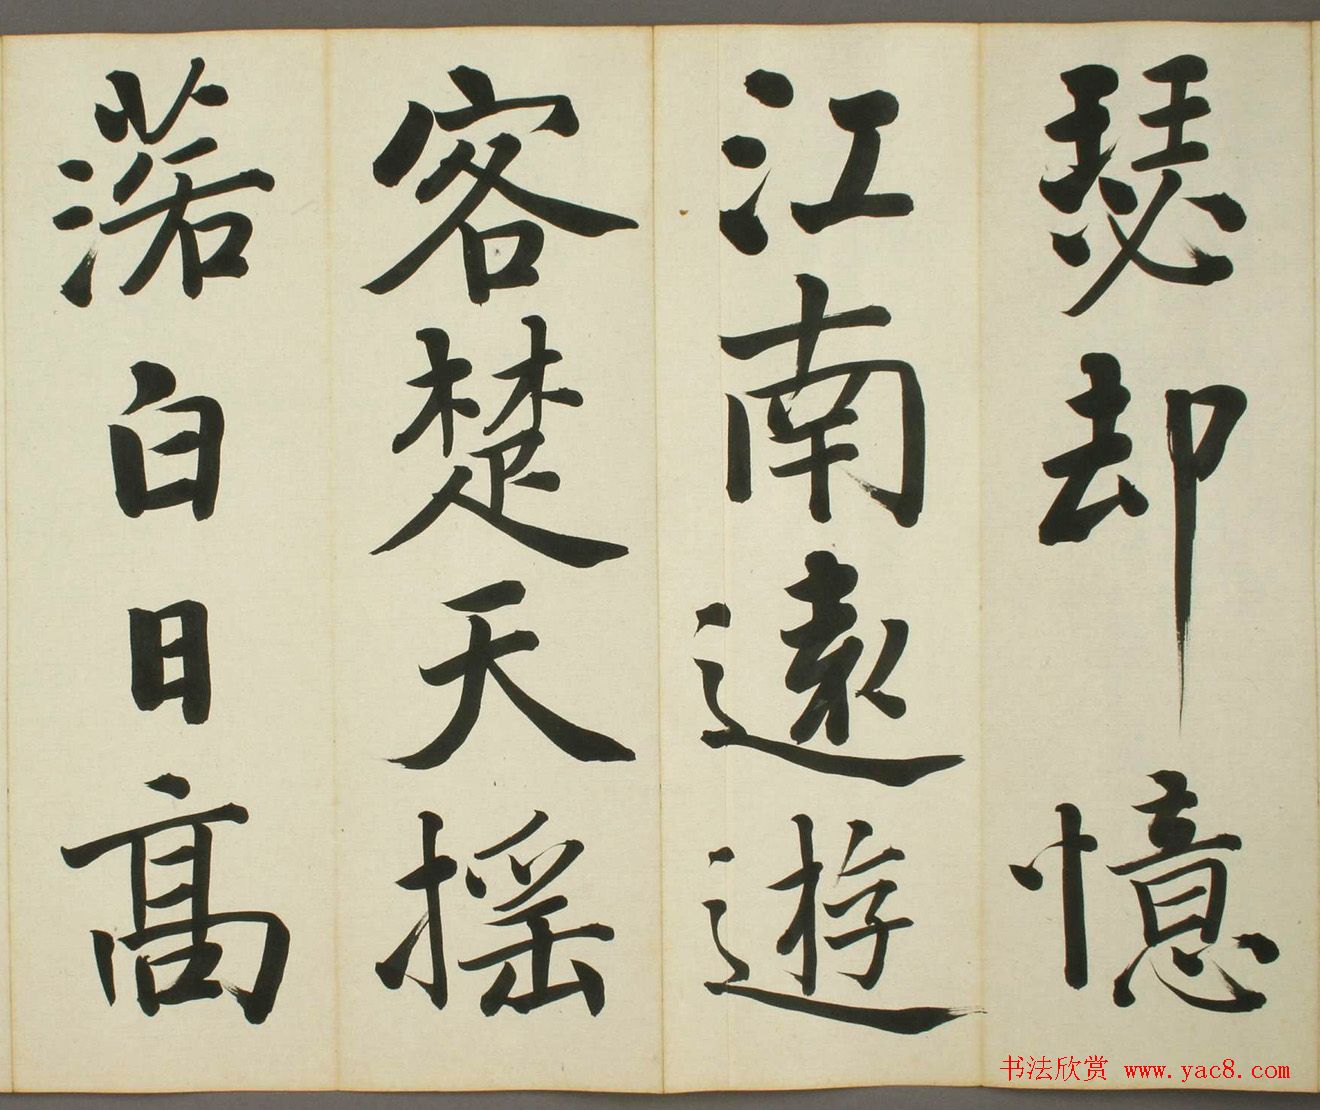 瑟却憶
江南遠遊
客楚天摇
落白日高
书法欣赏 www.yac8.com